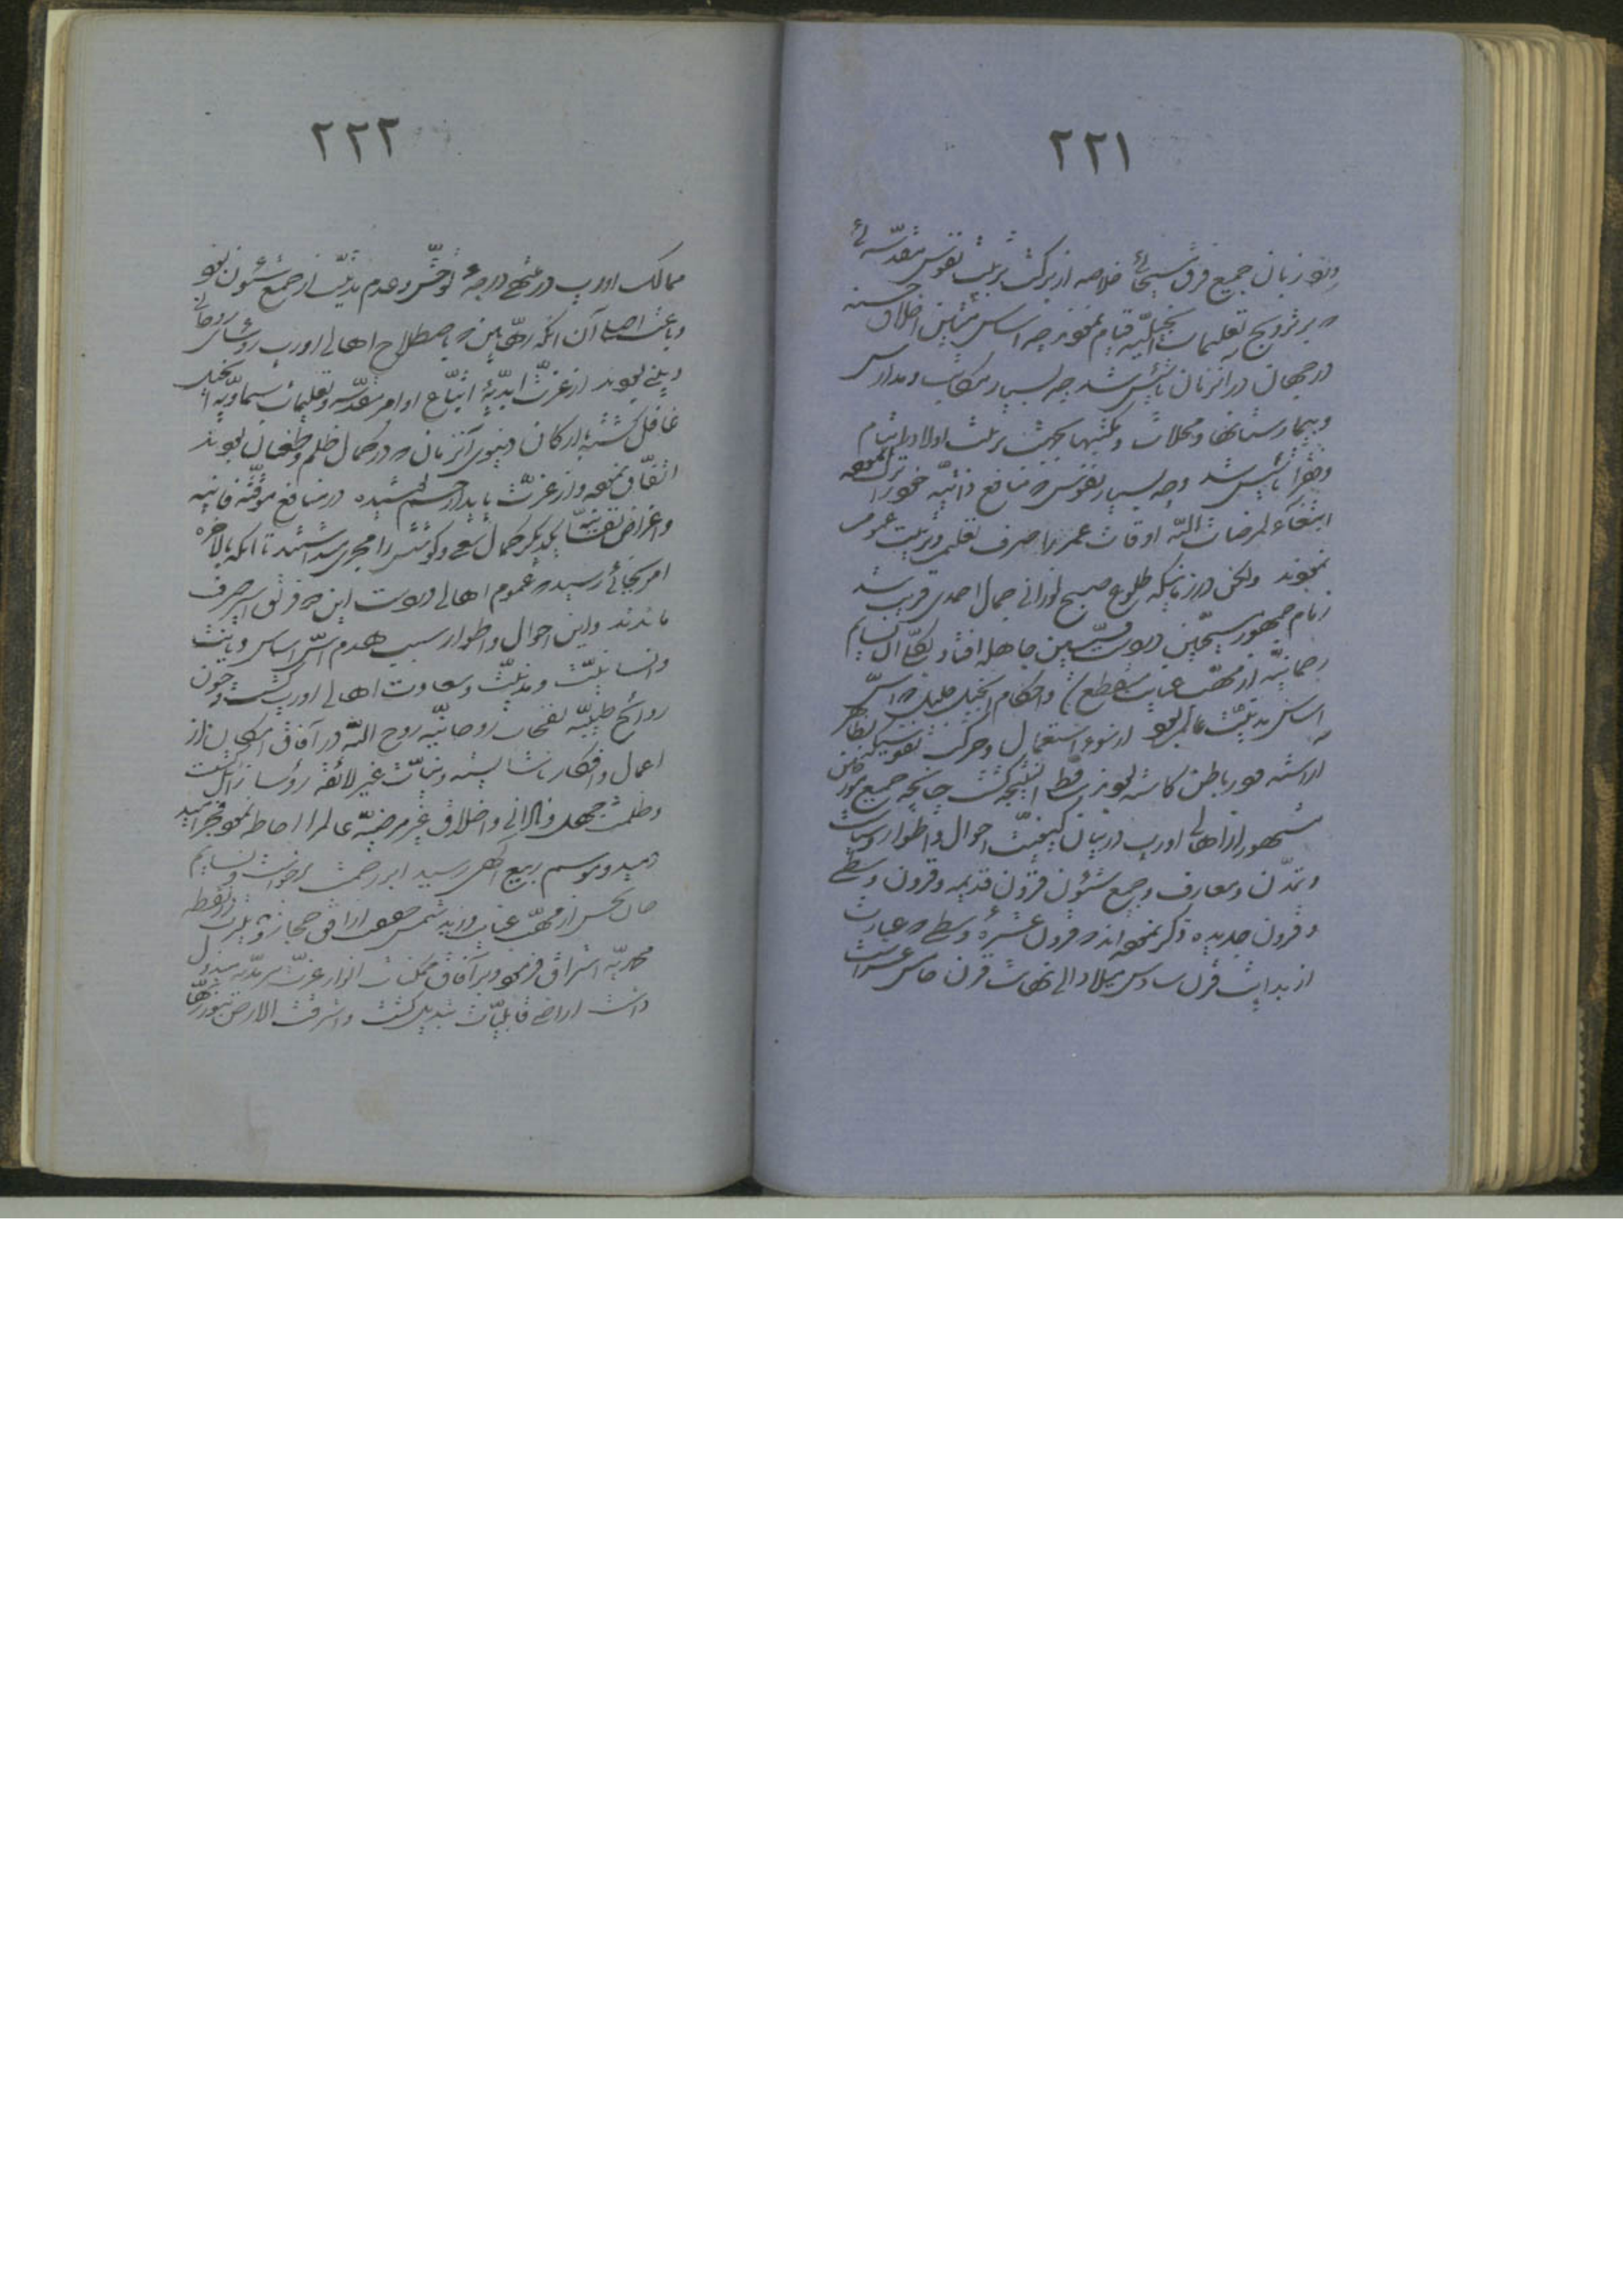 ٢٢١
و نور زبان جمیع فرق مسیحائی خلاصه از برکت تربیت نفوس مقدّسه‌ئی
که بر ترویج تعلیمات انجیلیّه قیام نمودند چه اساس متین اخلاق حسنه
در جهان در انزمان تأسیس شد چه بسیار مکاتب و مدارس
و بیمارستانها و محلات و مکتبها بجهت تربیت اولاد ایتام
و فقرا تأسیس شد و چه بسیار نفوس که منافع ذاتیّه خود را ترک نموده
ابتغاءً لمرضات اللّه اوقات عمر را صرف تعلیم و تربیت عموم
نمودند ولکن در زمانیکه طلوع صبح نورانی جمال احمدی قریب شد
زمام جمهور مسیحیّین در دست قسّیسین جاهله افتاد بکلّی آن نسایم
رحمانیّه از مهبّ عنایت منقطع و احکام انجیل جلیل که اسّ
اساس مدنیّت عالم بود از سوء استعمال و حرکت نفوسیکه بظاهر
اراسته و در باطن کاسته بودند ساقط النّتیجه گشت چنانچه جمیع مورّخین
مشهور از اهالی اورپ در بیان کیفیّت احوال و اطوار و سیاست
و تمدّن و معارف و جمیع شئون قرون قدیمه و قرون وسطی
و قرون جدیده ذکر نموده‌اند که قرون عشرهٔ وسطی که عبارت
از بدایت قرن سادس میلاد الی نهایت قرن خامس عشر است
٢٢٢
ممالک اورپ در منتهی درجهٔ توحّش و عدم مدنیّت از جمیع شئون بود
و باعث اصلی آن آنکه رهّابین که باصطلاح اهالی اورپ رؤسای روحانی
و دینی بودند از عزّت ابدیّهٔ اتّباع اوامر مقدّسه و تعلیمات سماویّه انجیل
غافل گشته با ارکان دنیوی آنزمان که در کمال ظلم و طغیان بودند
اتّفاق نموده و از عزّت پایدار چشم پوشیده در منافع موقّته فانیه
و اغراض نفسانیّه یکدیگر کمال سعی و کوشش را مجری میداشتند تا آنکه بالاخره
امر بجائی رسید که عموم اهالی در دست این دو فریق اسیر صرف
ماندند و این احوال و اطوار سبب هدم اسّ اساس دیانت
و انسانیّت و مدنیّت و سعادت اهالی اورپ گشت و چون
روائح طیّبهٔ نفحات روحانیّه روح اللّه در آفاق امکان از
اعمال و افکار ناشایسته و نیّات غیر لائقه رؤسا زائل گشت
و ظلمت جهل و نادانی و اخلاق غیر مرضیّه عالم را احاطه نمود فجر امید
دمید و موسم ربیع الهی رسید ابر رحمت برخواست و نسایم
جان‌بخش از مهبّ عنایت وزید شمس حقیقت از افق حجاز و یثرب در نقطهٔ
محمّدیّه اشراق فرمود و بر آفاق ممکنات انوار عزّت سرمدیّه مبذول
داشت اراضی قابلیّات تبدیل گشت و اشرقت الارض بنور ربّها